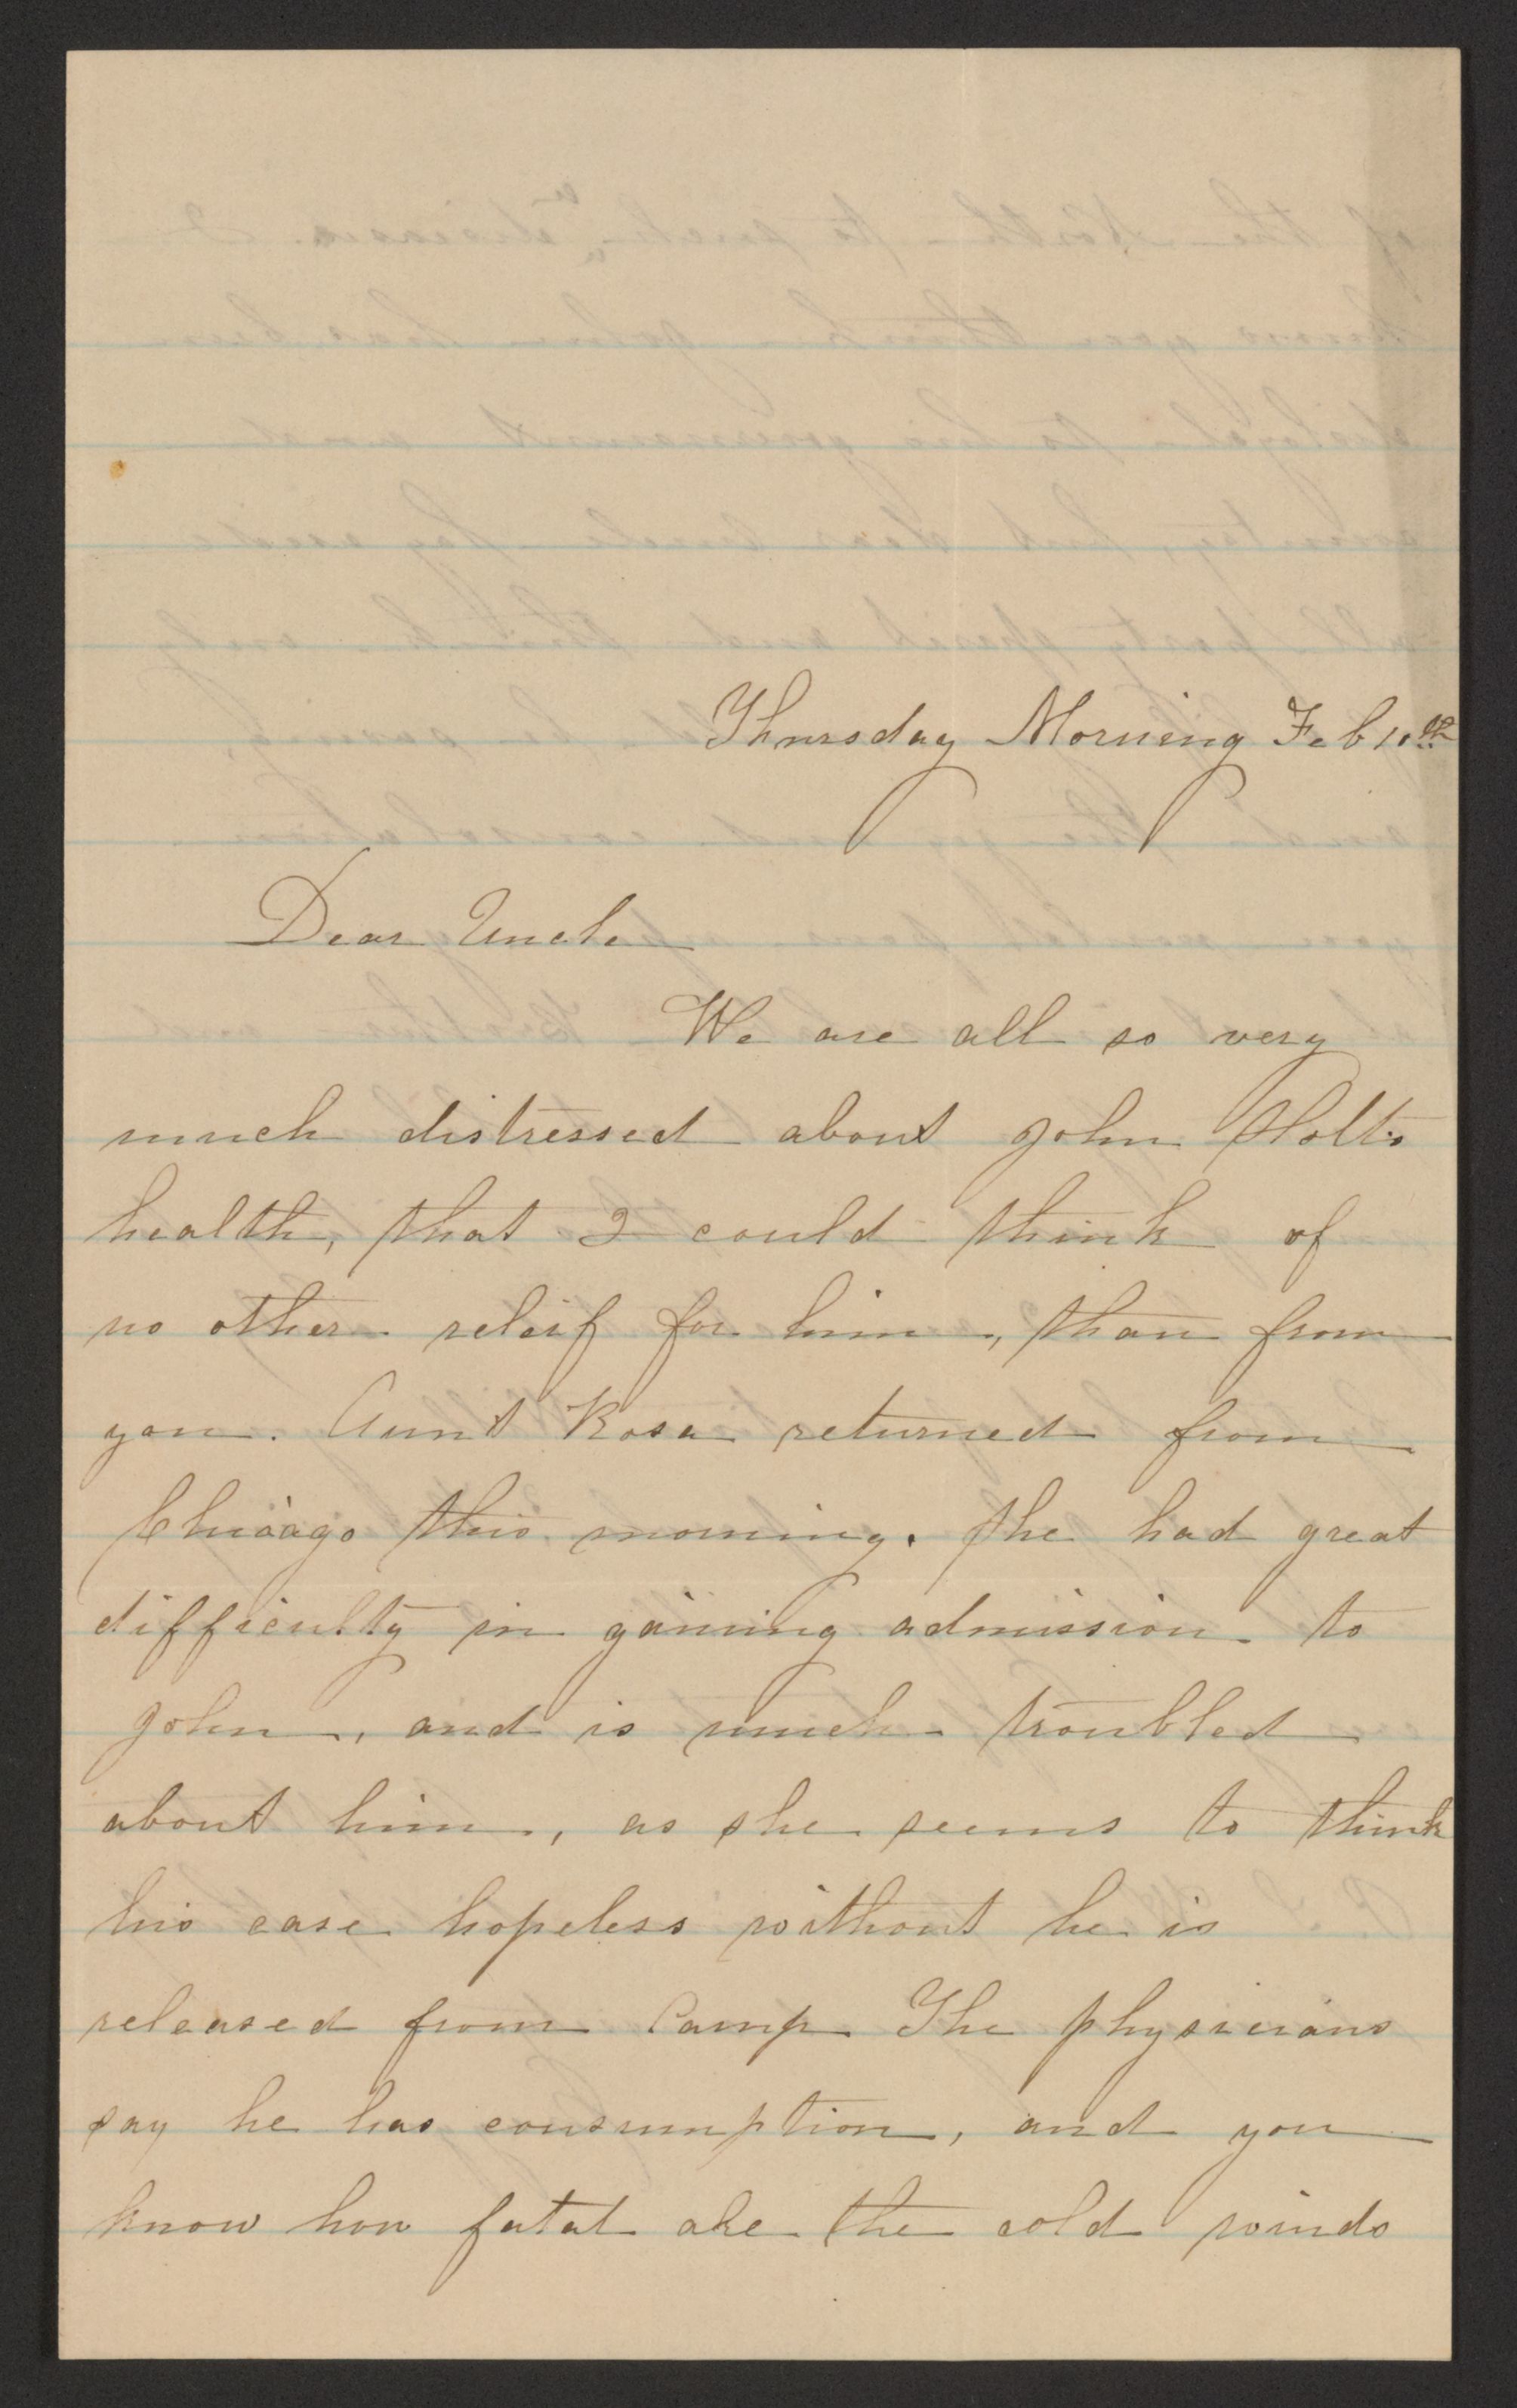 Thursday Morning Feb 10th
Dear Uncle
We are all so very
much distressed about John Holts
health, that I could think of
no other releif for him, than from
you. Aunt Rosa returned from
Chicago this morning. She had great
difficulty in gaining admission to
John, and is much troubled
about him, as she seems to think
his case hopeless without he is
released from Camp The physicians
say he has consumption, and you
know how fatal are the cold winds